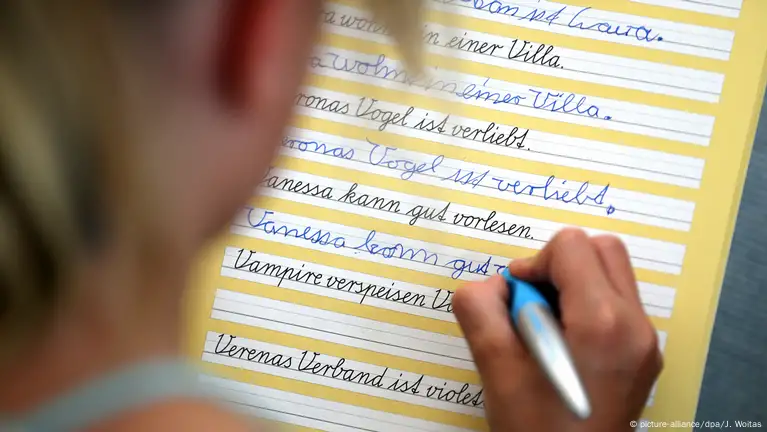 ist Laura.
wohnt in einer Villa.
wohnt in einer Villa.
ronas Vogel ist verliebt.
eronas Vogel ist verliebt.
Vanessa kann gut vorlesen.
Vanessa kann gut
Vampire verspeisen
Verenas Verband ist violet
© picture-alliance/dpa/J. Woitas